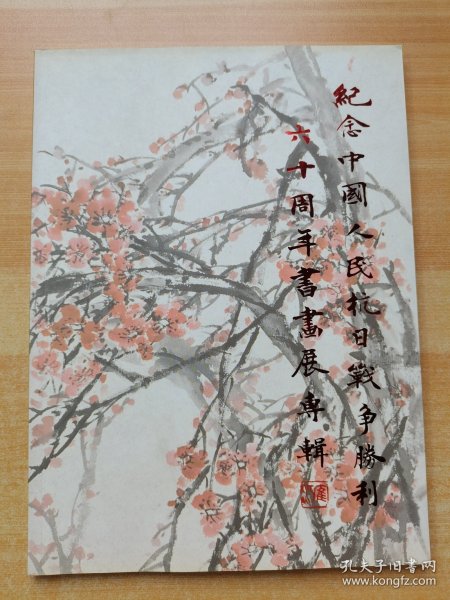 紀念中國人民抗日戰争勝利
六十周年書畫展專輯
孔夫子旧书网
www.kongfz.com